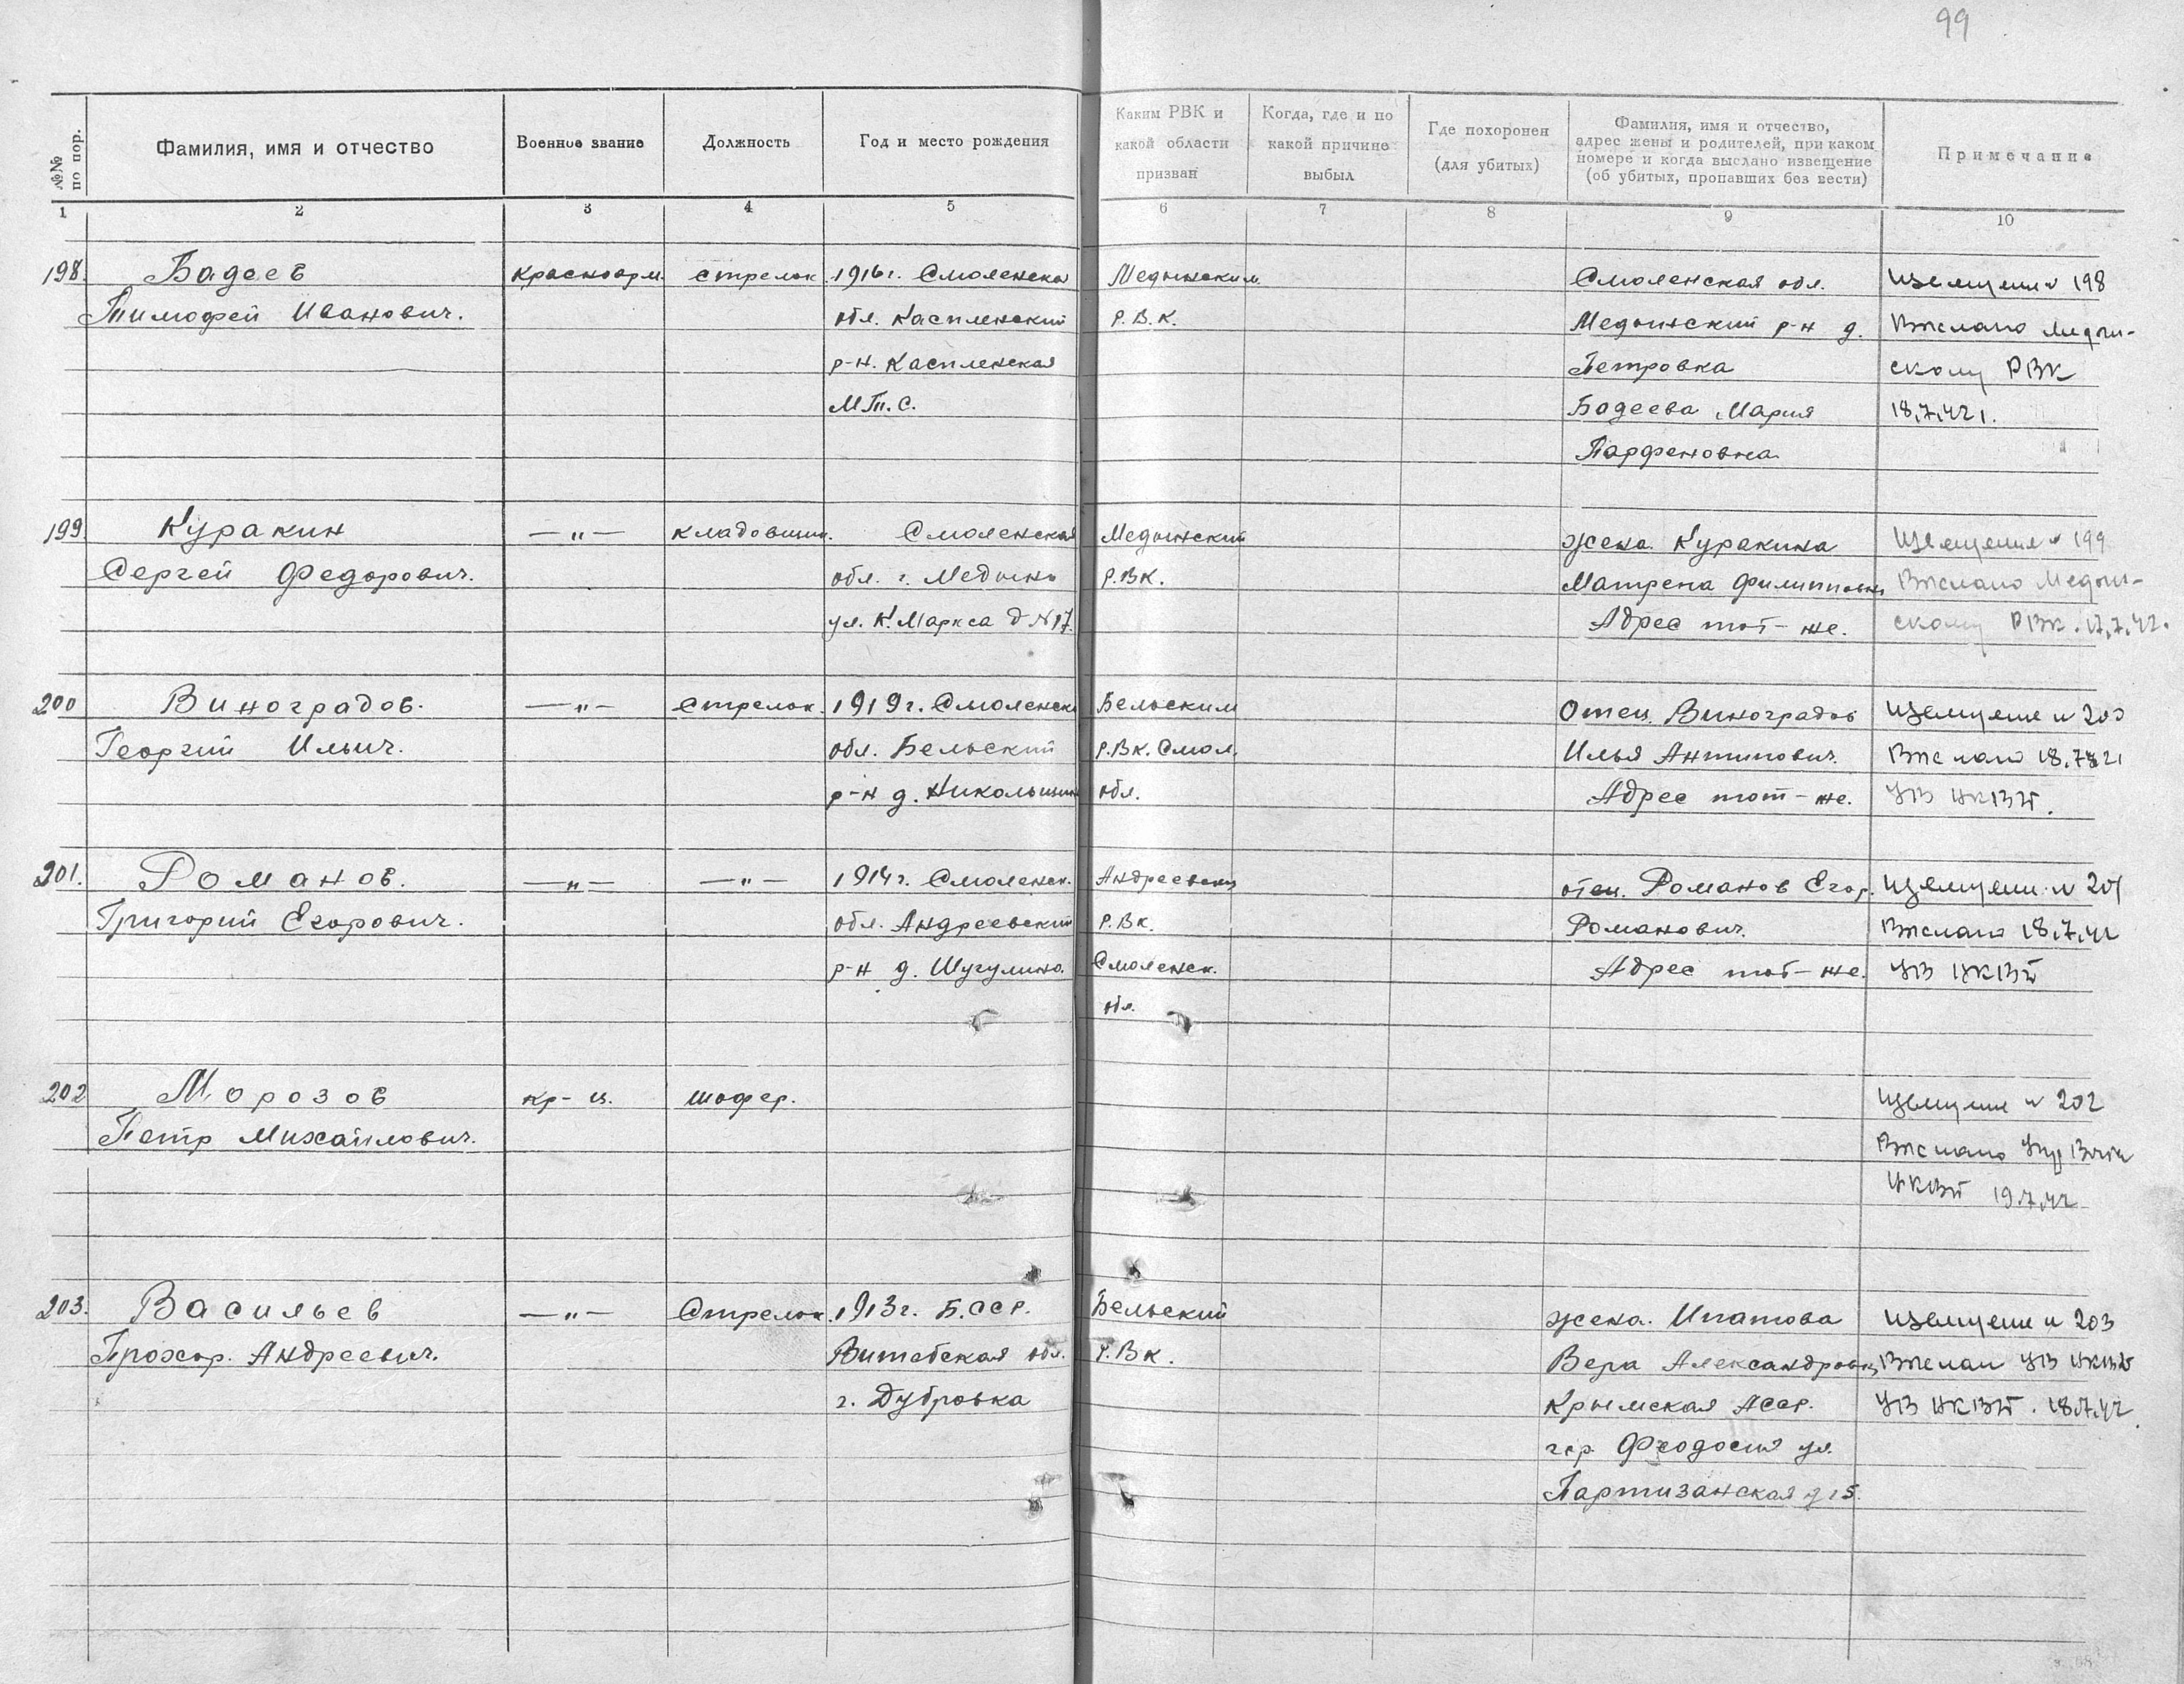 99
№№ по пор.
Фамилия, имя и отчество
Военное звание
Должность
Год и место рождения
Каким РВК и
какой области
призван
Когда, где и по
какой причине
выбыл
Где похоронен
(для убитых)
Фамилия, имя и отчество,
адрес жены и родителей, при каком
номере и когда выслано извещение
(об убитых, пропавших без вести)
Примечание
1 2 3 4 5 6 7 8 9 10
198. Бадеев красноарм. стрелок. 1916 г. Смоленска Медынским Смоленская обл. Извещение № 198
Тимофей Иванович. обл. Каспленский Р.В.К. Медынский р-н д. Выслано Медын-
р-н. Каспленская Петровка скому РВК
М.Т.С. Бадеева Мария 18.7.42 г.
Парфеновна
199. Куракин —"— кладовщик. Смоленская Медынский жена. Куракина Извещение № 199
Сергей Федорович. обл. г. Медынь Р.ВК. Матрена Филипповна Выслано Медын-
ул. К.Маркса д № 17. Адрес тот-же. скому РВК. 17.7.42.
200 Виноградов. —"— стрелок. 1919 г. Смоленска Бельским Отец. Виноградов Извещение № 200
Георгий Ильич. обл. Бельский Р.Вк. Смол. Илья Антипович. Выслано 18.7.42 г
р-н д. Никольщина обл. Адрес тот-же. УВ НКВД.
201. Романов. —"— —"— 1914 г. Смоленск. Андреевским отец. Романов Егор. Извещение № 201
Григорий Егорович. обл. Андреевский Р.Вк. Романович. Выслано 18.7.42
р-н д. Шугулино. Смоленск. Адрес тот-же. УВ НКВД
обл.
202 Морозов кр-ц. шофер. Извещение № 202
Петр Михайлович. Выслано
НКВД 19.7.42
203. Васильев —"— Стрелок. 1913 г. Б.ССР. Бельский жена. Ипатова Извещение № 203
Прохор. Андреевич. Витебская обл. Р.Вк. Вера Александровна, Выслан УВ НКВД
г. Дубровка Крымская АССР. УВ НКВД. 18.7.42
гор. Феодосия ул.
Партизанская д 15.